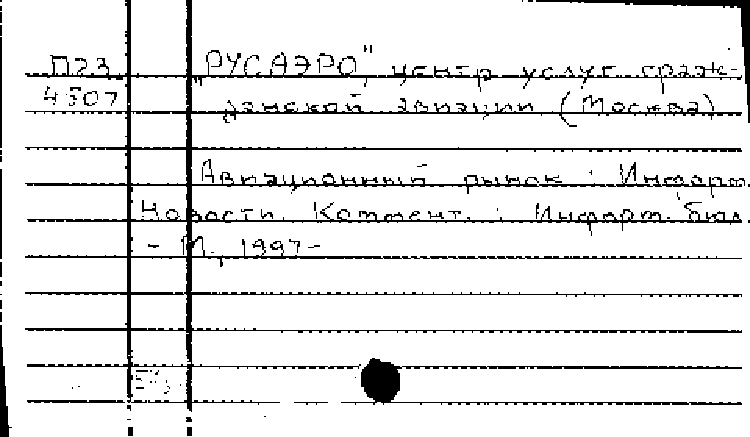 П23 "РУСАЭРО", центр услуг граж-
4507 данской авиации (Москва)
Авиационный рынок : Информ.
Новости. Коммент. : Информ. бюл.
- М., 1997-